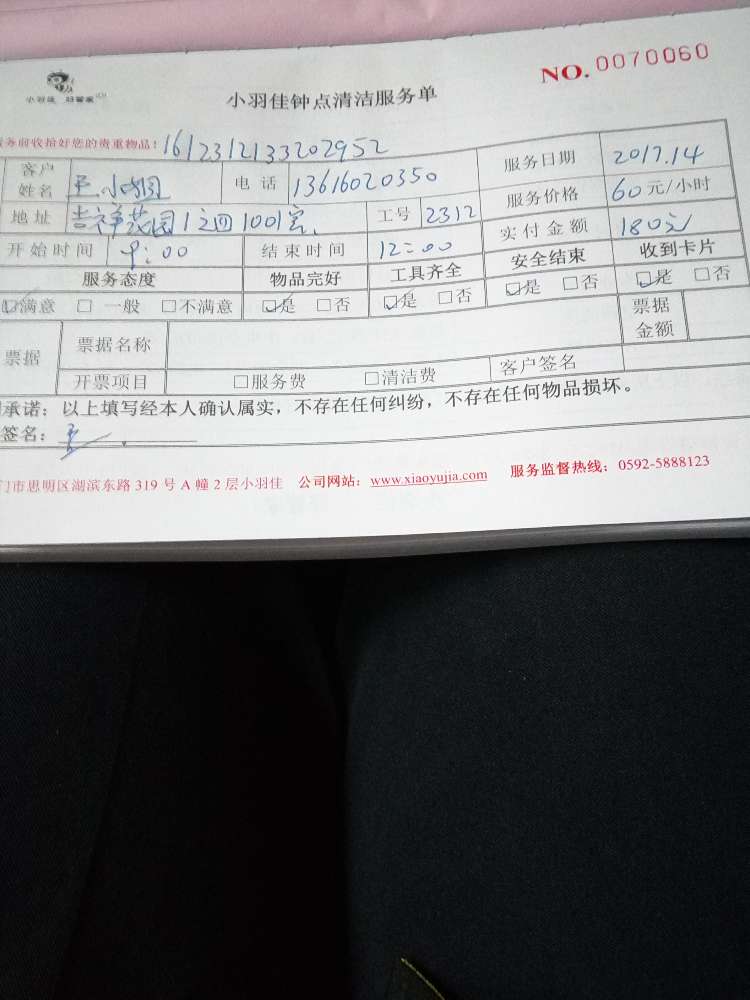 NO.0070060
小羽佳 好管家
小羽佳钟点清洁服务单
务前收拾好您的贵重物品! 1612312133202952
客户姓名 王小 电话 13616020350 服务日期 2017.1.4
地址 吉祥花园1之四1001室 工号 2312 服务价格 60元/小时
开始时间 9:00 结束时间 12:00 实付金额 180元
服务态度 物品完好 工具齐全 安全结束 收到卡片
☑满意 □一般 □不满意 ☑是 □否 ☑是 □否 ☑是 □否 ☑是 □否
票据 票据名称 票据金额
开票项目 □服务费 □清洁费 客户签名
承诺:以上填写经本人确认属实,不存在任何纠纷,不存在任何物品损坏。
签名:
门市思明区湖滨东路 319 号 A 幢 2 层小羽佳 公司网站:www.xiaoyujia.com 服务监督热线:0592-5888123